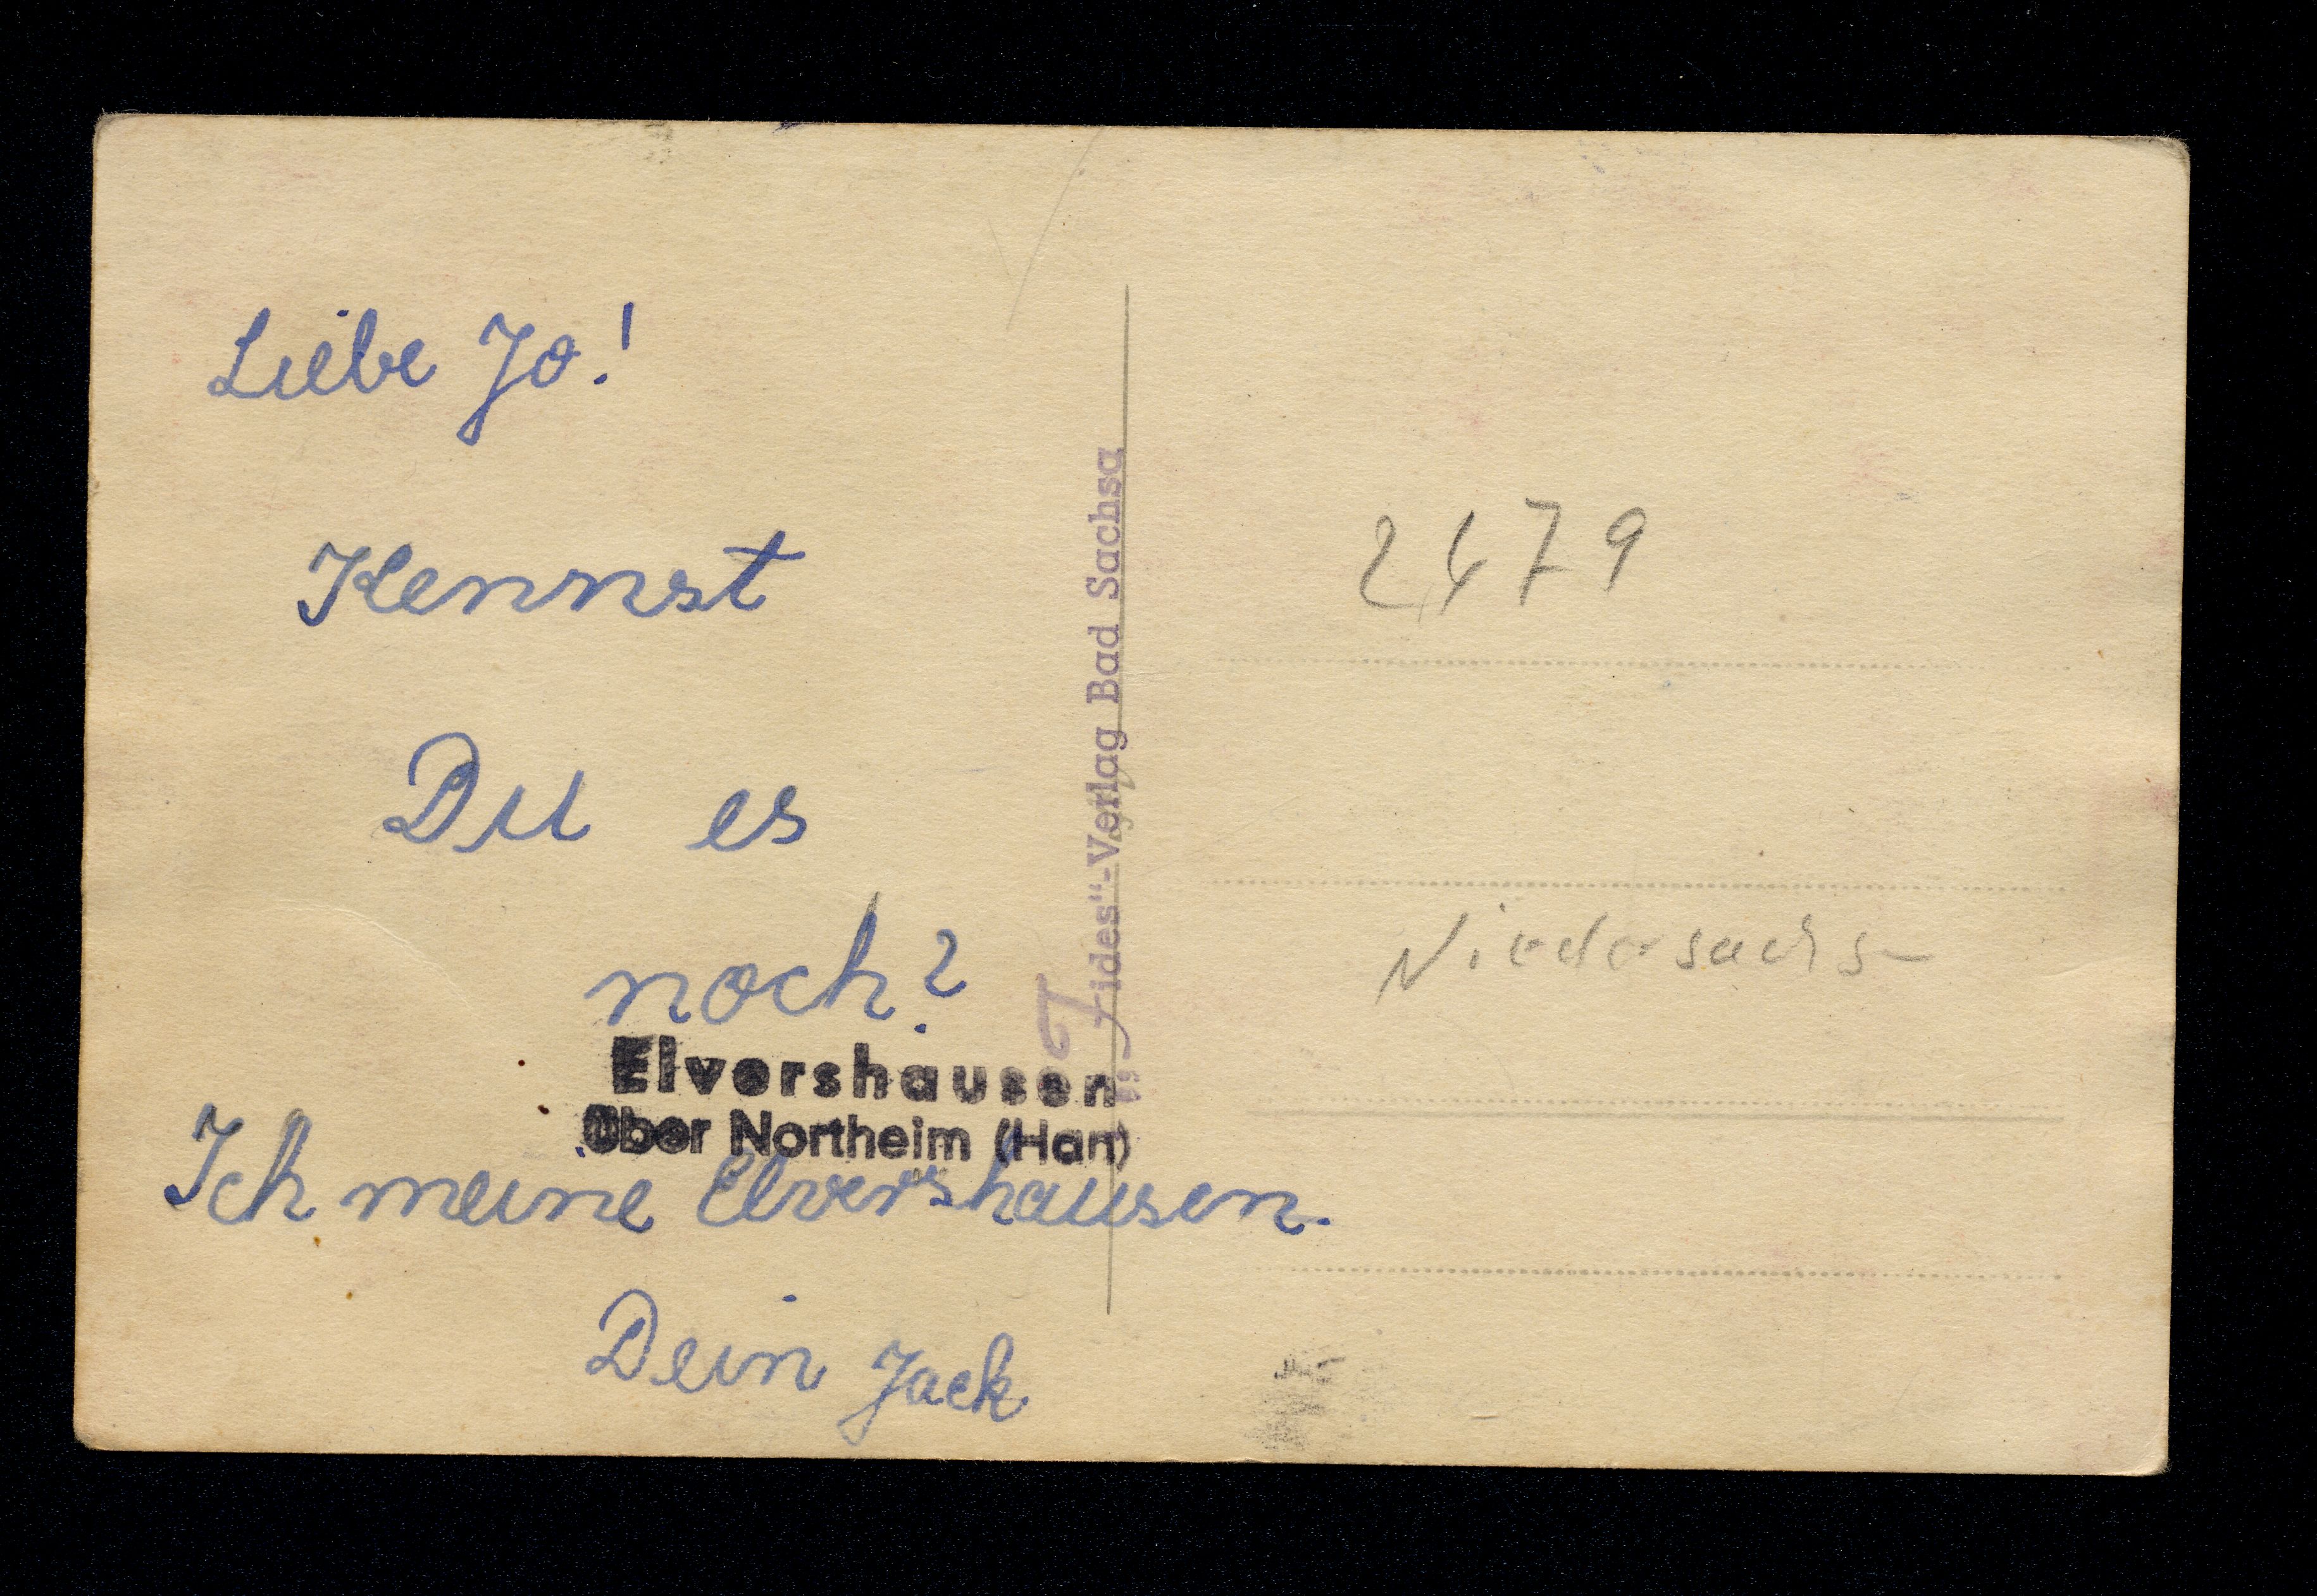 Liebe Jo!
Kennst
Du es
noch?
Elvershausen
Über Northeim (Han)
Ich meine Elvershausen.
Dein Jack
„Fides“-Verlag Bad Sachsa
2479
Niedersachs